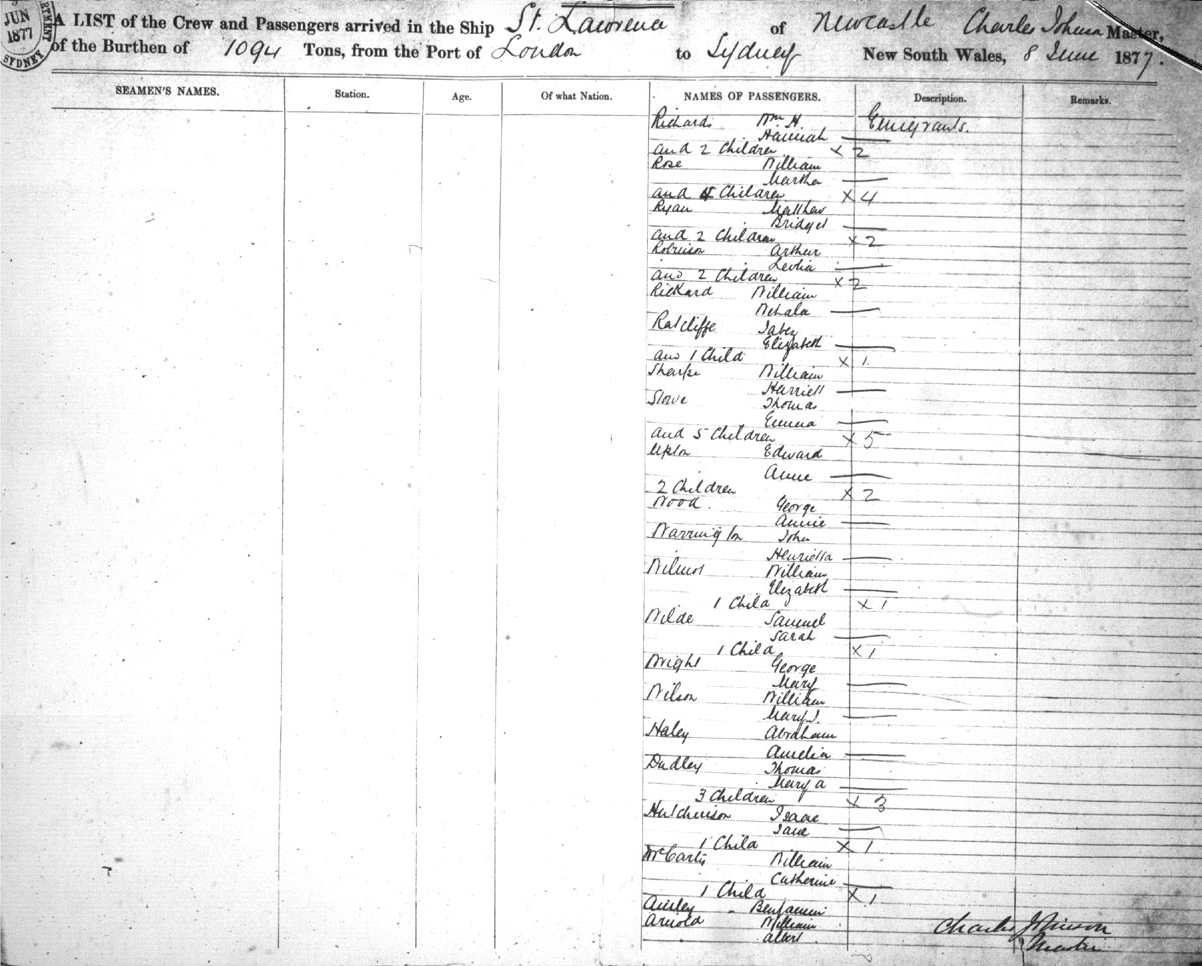 JUN
1877
SYDNEY
A LIST of the Crew and Passengers arrived in the Ship St. Lawrence of Newcastle Charles Johnson Master,
of the Burthen of 1094 Tons, from the Port of London to Sydney New South Wales, 8 June 1877.
SEAMEN'S NAMES. Station. Age. Of what Nation. NAMES OF PASSENGERS. Description. Remarks.
Richards Wm H. Emigrants.
Hannah
and 2 Children x 2
Rose William
Martha
and 4 Children x 4
Ryan Matthew
Bridget
and 2 Children x 2
Robinson Arthur
and 2 Children x 2
Rickard William
Ratcliffe Jabez
Elizabeth
and 1 Child x 1
Sharpe William
Harriett
Stowe Thomas
Emma
and 5 Children x 5
Upton Edward
Anne
2 Children x 2
Wood George
Annie
Warrington John
Henrietta
Wilmot William
Elizabeth
1 Child x 1
Wilde Samuel
Sarah
1 Child x 1
Wright George
Mary
Wilson William
Mary J.
Haley Abraham
Amelia
Dudley Thomas
Mary a
3 Children x 3
Hutchinson Isaac
Jane
1 Child x 1
William
Catherine
1 Child x 1
Ainsley Benjamin
Arnold William
Albert
Charles Johnson
Master